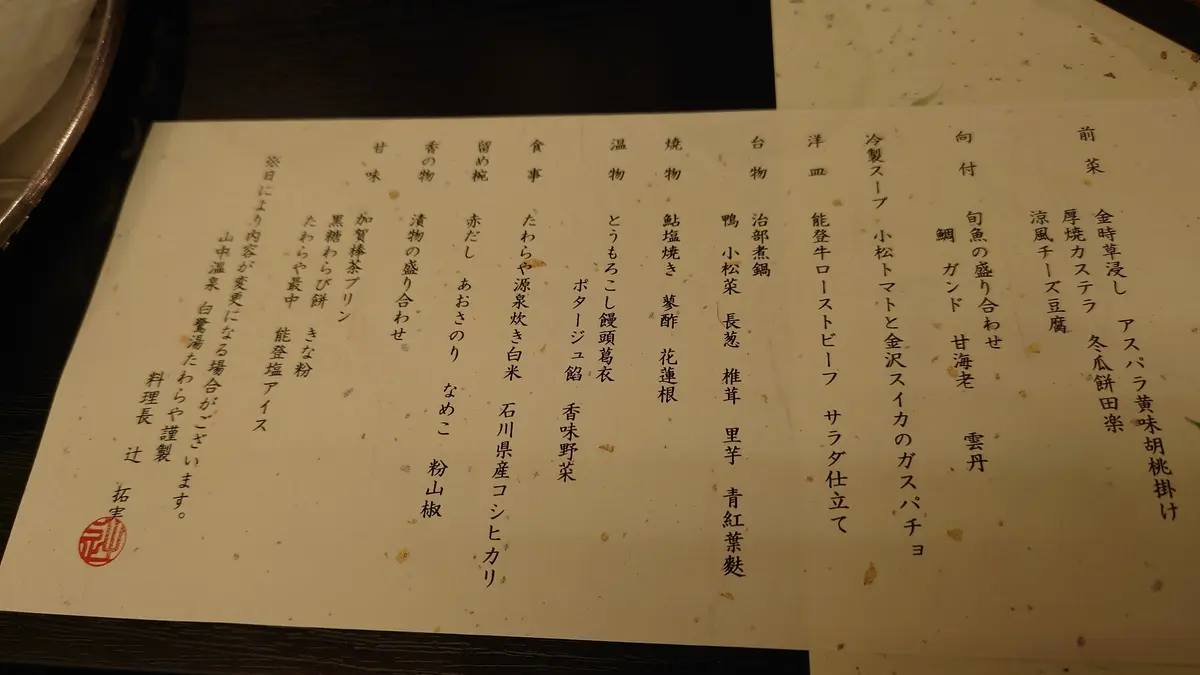 前菜
金時草浸し アスパラ黄味胡桃掛け
厚焼カステラ 冬瓜餅田楽
涼風チーズ豆腐
向付
旬魚の盛り合わせ
鯛 ガンド 甘海老 雲丹
冷製スープ 小松トマトと金沢スイカのガスパチョ
洋皿 能登牛ローストビーフ サラダ仕立て
台物 治部煮鍋
鴨 小松菜 長葱 椎茸 里芋 青紅葉麩
焼物 鮎塩焼き 蓼酢 花蓮根
温物 とうもろこし饅頭葛衣
ポタージュ餡 香味野菜
食事 たわらや源泉炊き白米 石川県産コシヒカリ
留め椀 赤だし あおさのり なめこ 粉山椒
香の物 漬物の盛り合わせ
甘味 加賀棒茶プリン
黒糖わらび餅 きな粉
たわらや最中 能登塩アイス
※日により内容が変更になる場合がございます。
山中温泉 白鷺湯たわらや謹製
料理長 辻 拓実